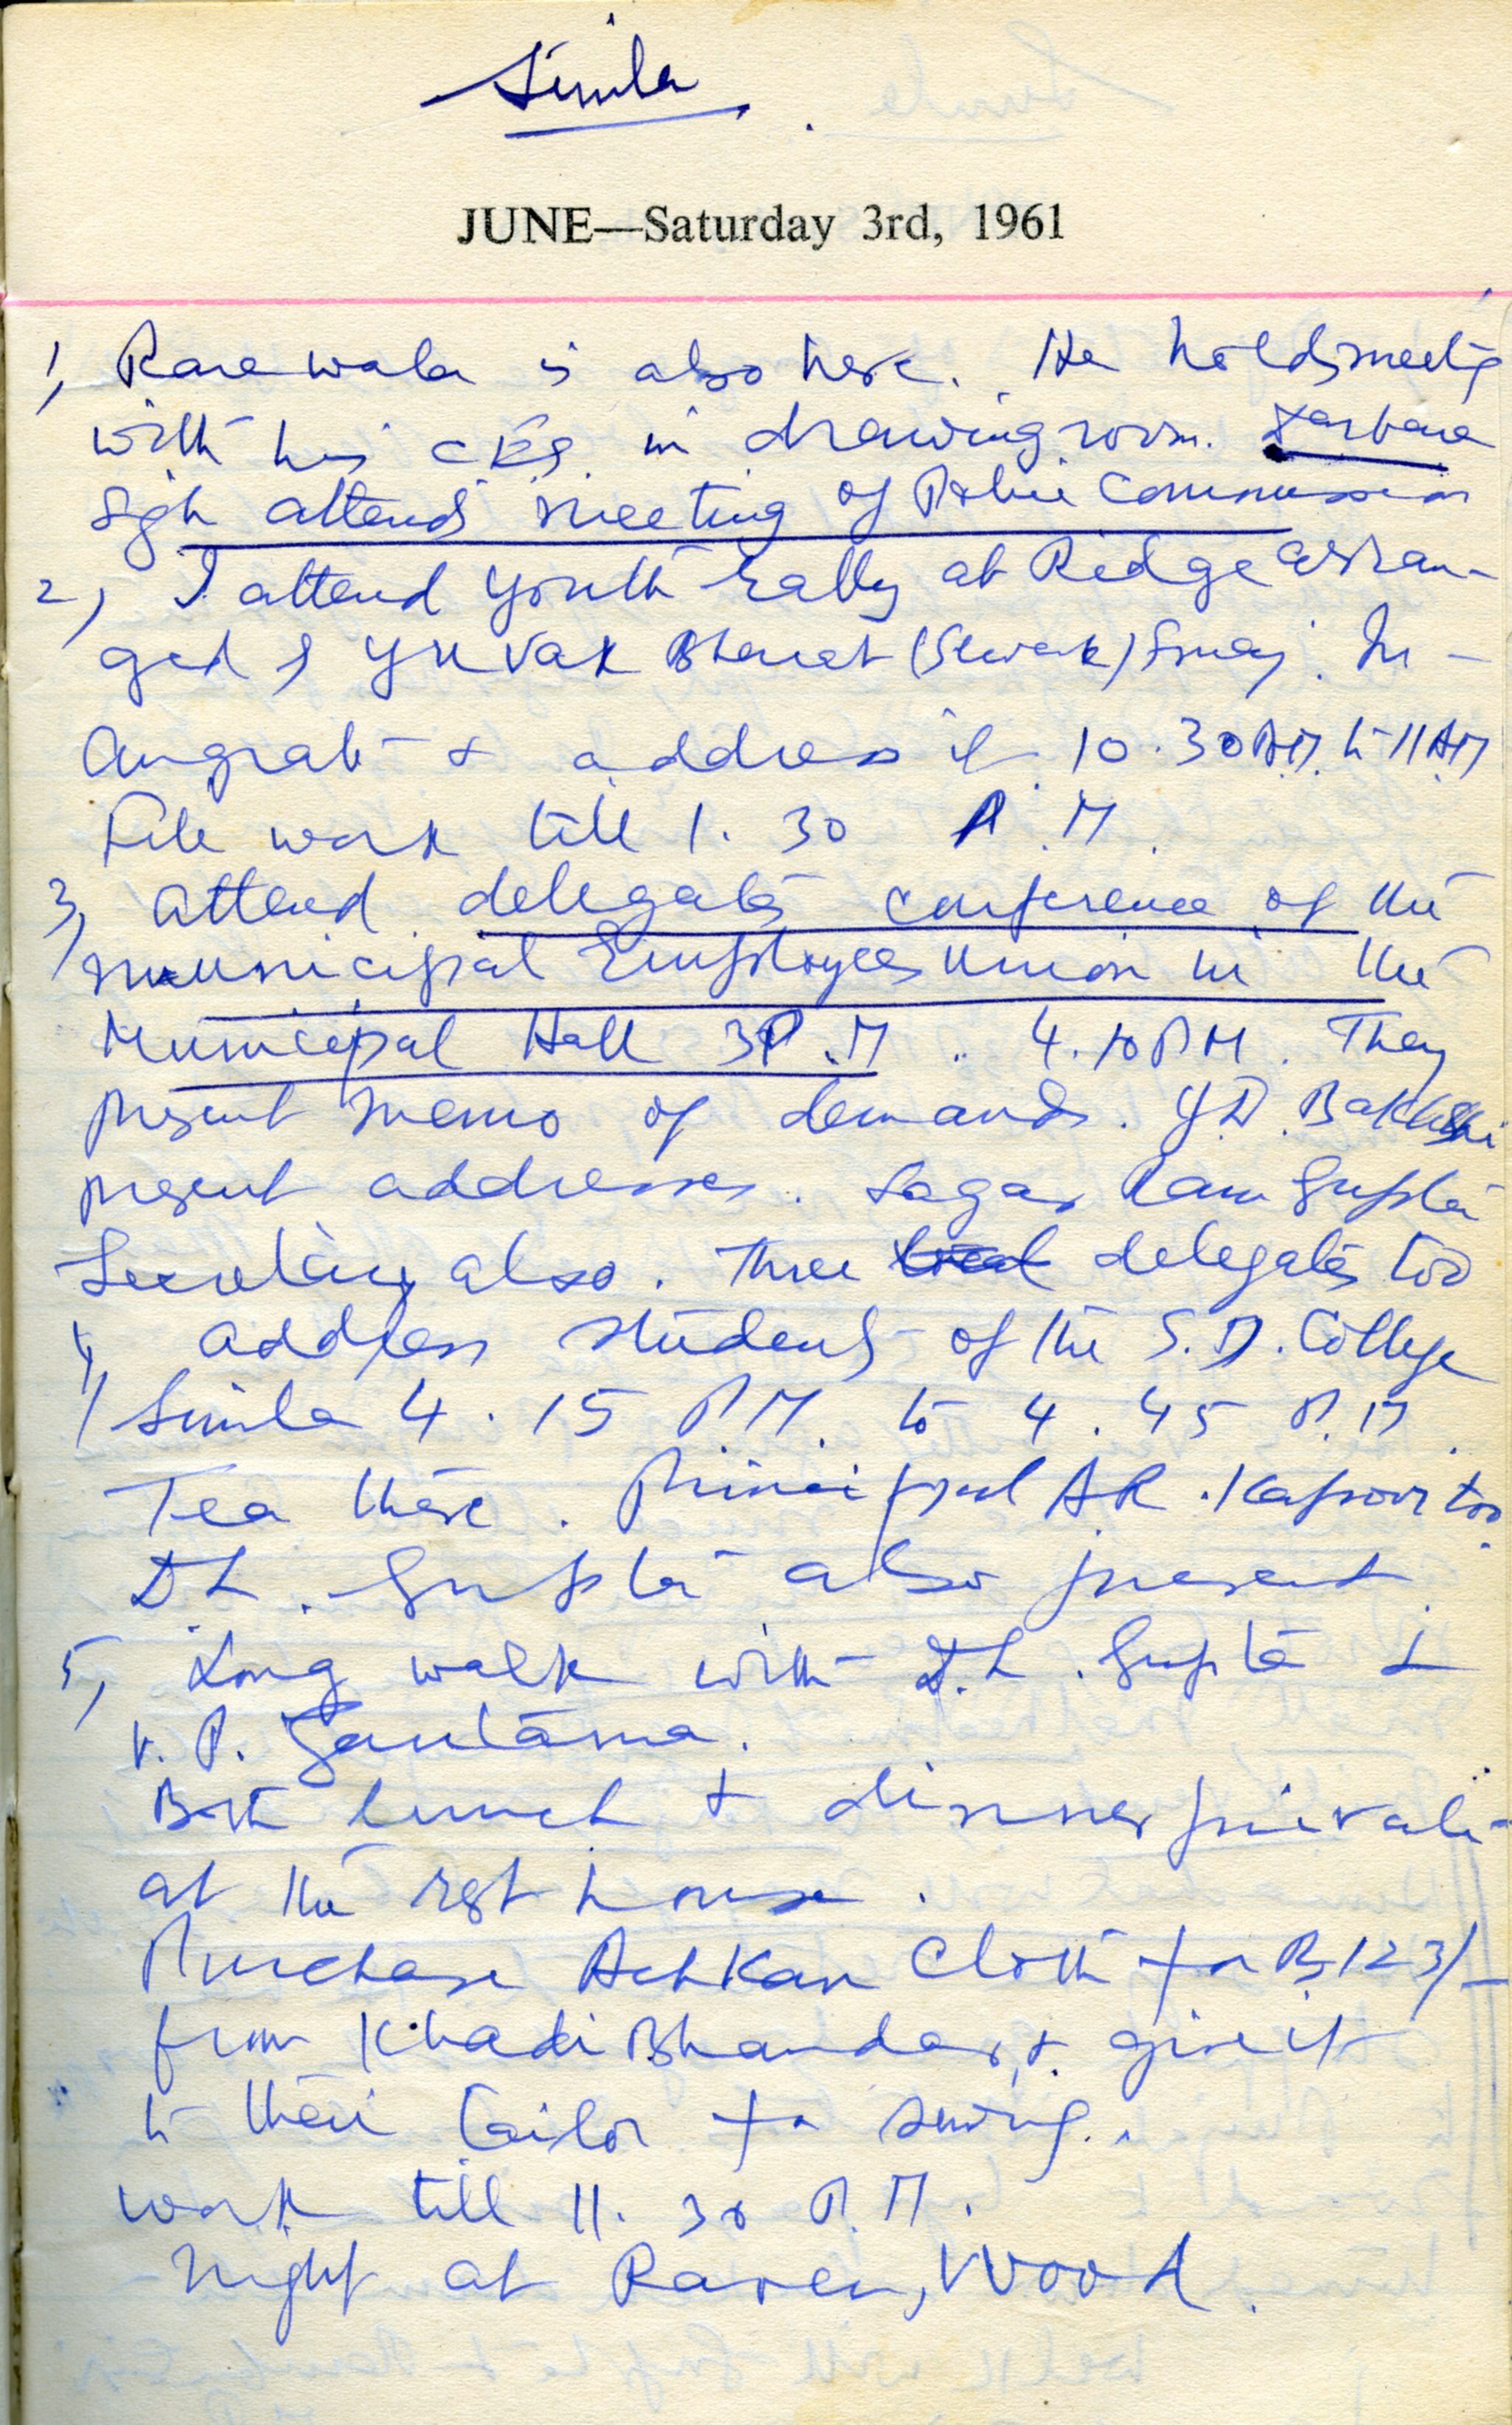 Simla
JUNE—Saturday 3rd, 1961
1, Rarewala is also here. He holds meetig
with his CEs in drawing room. Darbara
Sigh attends meeting of Police Commission
2, I attend youth rally at Ridge arran-
ged by Yuvak Bharat (Sewak) Smaj. In-
augrate & address it 10.30 AM to 11 AM
File work till 1.30 P.M.
3, attend delegates conference of the
municipal Employees Union in the
Municipal Hall 3 P.M .. 4.10 PM. They
present memo of demands. Y.D. Bakhshi
present addresses. Sagar Ram Gupta
Secretary also. Three delegates too
4, address students of the S.D. College
Simla 4.15 P.M. to 4.45 P.M.
Tea there. Principal A.R. Kapoor too
D.L. Gupta also present.
5, Long walk with D.L. Gupta &
V.P. Gautama.
Both lunch & dinner privately
at the rest house.
Purchase Achkan Cloth for Rs 123/-
from Khadi Bhandar, & give it
to their tailor for sewing.
work till 11.30 P.M.
Night at Raven, Wood.